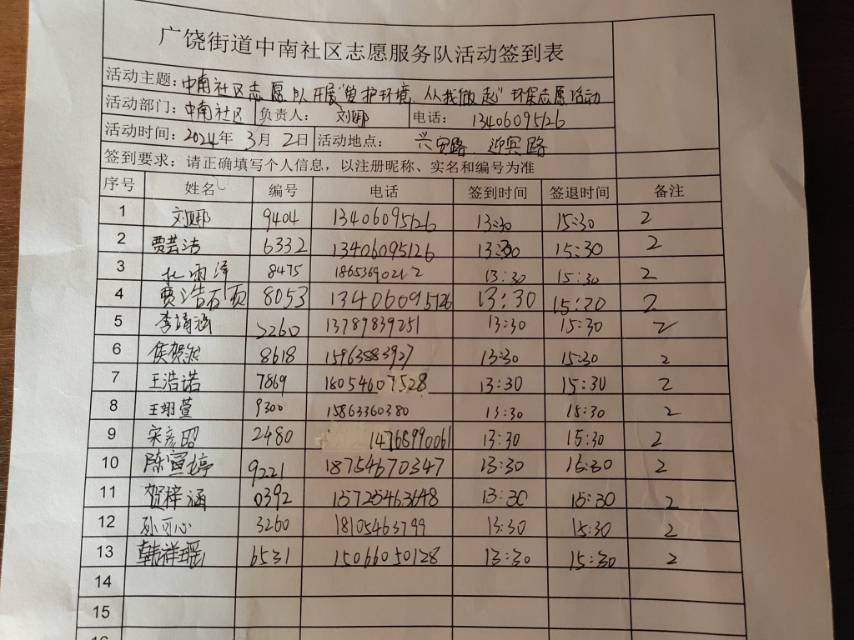 广饶街道中南社区志愿服务队活动签到表
活动主题：中南社区志愿队开展"爱护环境，从我做起"环保志愿活动
活动部门：中南社区 负责人：刘娜 电话：13406095126
活动时间：2024年3月2日 活动地点：兴安路、迎宾路
签到要求：请正确填写个人信息，以注册昵称、实名和编号为准
序号 姓名 编号 电话 签到时间 签退时间 备注
1 刘娜 9404 13406095126 13:30 15:30 2
2 贾芸洁 6332 13406095126 13:30 15:30 2
3 8475 13:30 15:30 2
4 贾浩硕 8053 13406095126 13:30 15:30 2
5 李靖涵 2260 13789839251 13:30 15:30 2
6 侯贺然 8618 15963583927 13:30 15:30 2
7 王浩诺 7869 18054607528 13:30 15:30 2
8 王翊萱 9300 15863360380 13:30 15:30 2
9 宋彦昭 2480 14768990061 13:30 15:30 2
10 陈宣婷 9221 18754670347 13:30 15:30 2
11 贺梓涵 0392 15725463648 13:30 15:30 2
12 孙可心 3260 18105463799 13:30 15:30 2
13 韩祥瑶 6531 15066050128 13:30 15:30 2
14
15